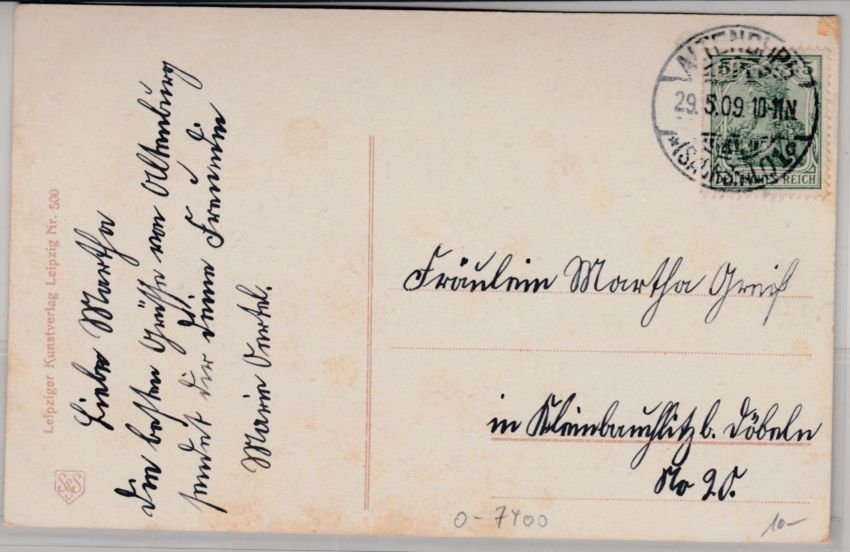 Leipziger Kunstverlag Leipzig Nr. 500
Liebe Martha
Die besten Grüsse von Altenburg
sendet dir deine Freundin
Marie Oertel.
ALTENBURG
29.5.09 10-11N
*(SACHS.-ALT.)1a
5 5
REICH
Fräulein Martha Greif
in Kleinbauchlitz b. Döbeln
No
0-7400
10-